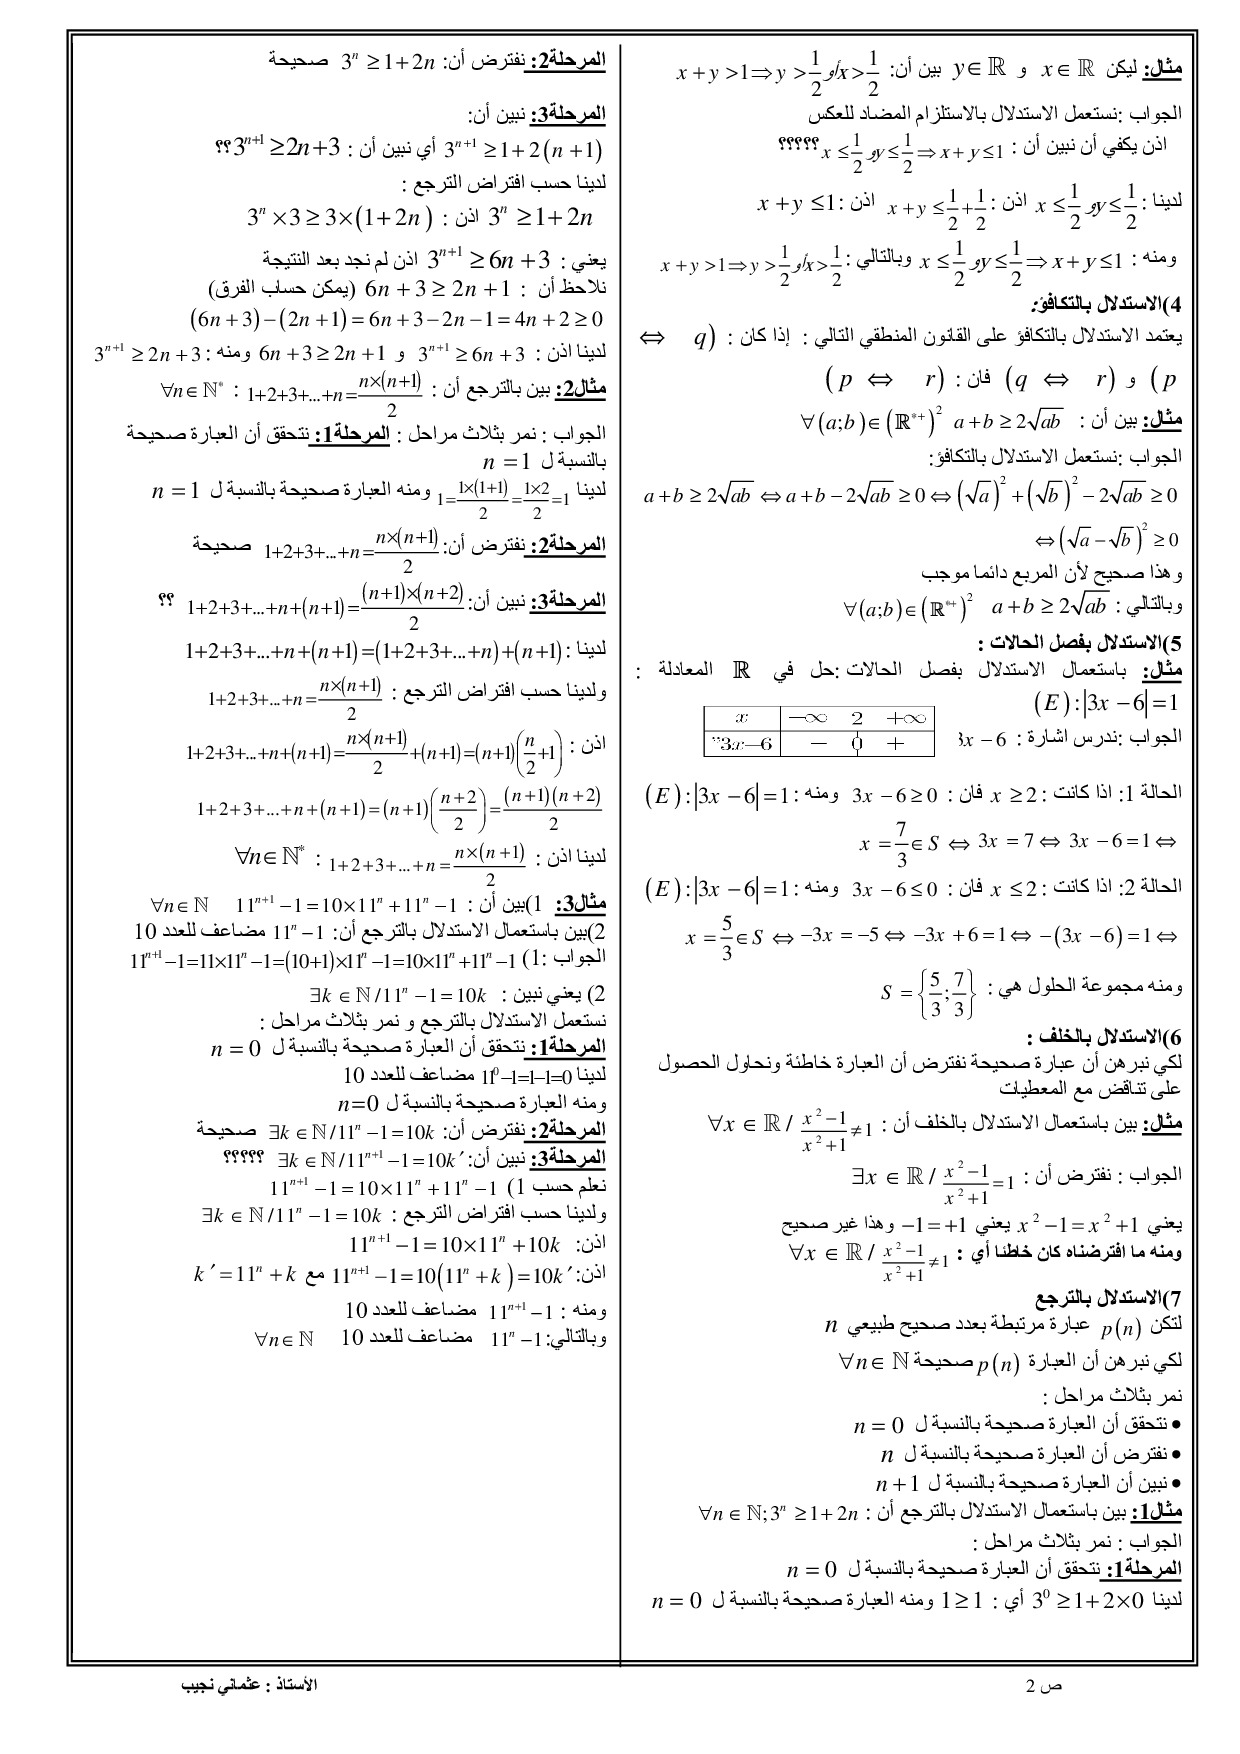 مثال: ليكن x ∈ ℝ و y ∈ ℝ بين أن: x + y > 1 ⇒ y > 1/2 أو x > 1/2
الجواب :نستعمل الاستدلال بالاستلزام المضاد للعكس
اذن يكفي أن نبين أن : x ≤ 1/2 و y ≤ 1/2 ⇒ x + y ≤ 1 ؟؟؟؟؟
لدينا : x ≤ 1/2 و y ≤ 1/2 اذن : x + y ≤ 1/2 + 1/2 اذن : x + y ≤ 1
ومنه : x ≤ 1/2 و y ≤ 1/2 ⇒ x + y ≤ 1 وبالتالي : x + y > 1 ⇒ y > 1/2 أو x > 1/2
4)الاستدلال بالتكافؤ:
يعتمد الاستدلال بالتكافؤ على القانون المنطقي التالي : إذا كان : (q ⇔
p) و (q ⇔ r) فان : (p ⇔ r)
مثال: بين أن : ∀(a;b) ∈ (ℝ*⁺)² a + b ≥ 2√ab
الجواب :نستعمل الاستدلال بالتكافؤ:
a + b ≥ 2√ab ⇔ a + b − 2√ab ≥ 0 ⇔ (√a)² + (√b)² − 2√ab ≥ 0
⇔ (√a − √b)² ≥ 0
وهذا صحيح لأن المربع دائما موجب
وبالتالي : ∀(a;b) ∈ (ℝ*⁺)² a + b ≥ 2√ab
5)الاستدلال بفصل الحالات :
مثال: باستعمال الاستدلال بفصل الحالات :حل في ℝ المعادلة :
(E): |3x − 6| = 1
الجواب :ندرس اشارة : 3x − 6
x −∞ 2 +∞
"3x−6 − 0 +
الحالة 1: اذا كانت : x ≥ 2 فان : 3x − 6 ≥ 0 ومنه : (E): |3x − 6| = 1
⇔ 3x − 6 = 1 ⇔ 3x = 7 ⇔ x = 7/3 ∈ S
الحالة 2: اذا كانت : x ≤ 2 فان : 3x − 6 ≤ 0 ومنه : (E): |3x − 6| = 1
⇔ −(3x − 6) = 1 ⇔ −3x + 6 = 1 ⇔ −3x = −5 ⇔ x = 5/3 ∈ S
ومنه مجموعة الحلول هي : S = {5/3 ; 7/3}
6)الاستدلال بالخلف :
لكي نبرهن أن عبارة صحيحة نفترض أن العبارة خاطئة ونحاول الحصول
على تناقض مع المعطيات
مثال: بين باستعمال الاستدلال بالخلف أن : ∀x ∈ ℝ / (x² − 1)/(x² + 1) ≠ 1
الجواب : نفترض أن : ∃x ∈ ℝ / (x² − 1)/(x² + 1) = 1
يعني x² − 1 = x² + 1 يعني −1 = +1 وهذا غير صحيح
ومنه ما افترضناه كان خاطئا أي : ∀x ∈ ℝ / (x² − 1)/(x² + 1) ≠ 1
7)الاستدلال بالترجع
لتكن p(n) عبارة مرتبطة بعدد صحيح طبيعي n
لكي نبرهن أن العبارة p(n) صحيحة ∀n ∈ ℕ
نمر بثلاث مراحل :
• نتحقق أن العبارة صحيحة بالنسبة ل n = 0
• نفترض أن العبارة صحيحة بالنسبة ل n
• نبين أن العبارة صحيحة بالنسبة ل n + 1
مثال1: بين باستعمال الاستدلال بالترجع أن : ∀n ∈ ℕ; 3ⁿ ≥ 1 + 2n
الجواب : نمر بثلاث مراحل :
المرحلة1: نتحقق أن العبارة صحيحة بالنسبة ل n = 0
لدينا 3⁰ ≥ 1 + 2×0 أي : 1 ≥ 1 ومنه العبارة صحيحة بالنسبة ل n = 0
المرحلة2: نفترض أن: 3ⁿ ≥ 1 + 2n صحيحة
المرحلة3: نبين أن:
3ⁿ⁺¹ ≥ 1 + 2(n + 1) أي نبين أن : 3ⁿ⁺¹ ≥ 2n + 3 ؟؟
لدينا حسب افتراض الترجع :
3ⁿ ≥ 1 + 2n اذن : 3ⁿ × 3 ≥ 3×(1 + 2n)
يعني : 3ⁿ⁺¹ ≥ 6n + 3 اذن لم نجد بعد النتيجة
نلاحظ أن : 6n + 3 ≥ 2n + 1 (يمكن حساب الفرق)
(6n + 3) − (2n + 1) = 6n + 3 − 2n − 1 = 4n + 2 ≥ 0
لدينا اذن : 3ⁿ⁺¹ ≥ 6n + 3 و 6n + 3 ≥ 2n + 1 ومنه : 3ⁿ⁺¹ ≥ 2n + 3
مثال2: بين بالترجع أن : 1+2+3+...+n = n×(n+1)/2 : ∀n ∈ ℕ*
الجواب : نمر بثلاث مراحل : المرحلة1: نتحقق أن العبارة صحيحة
بالنسبة ل n = 1
لدينا 1 = 1×(1+1)/2 = 1×2/2 = 1 ومنه العبارة صحيحة بالنسبة ل n = 1
المرحلة2: نفترض أن: 1+2+3+...+n = n×(n+1)/2 صحيحة
المرحلة3: نبين أن: 1+2+3+...+n+(n+1) = (n+1)×(n+2)/2 ؟؟
لدينا : 1+2+3+...+n+(n+1) = (1+2+3+...+n)+(n+1)
ولدينا حسب افتراض الترجع : 1+2+3+...+n = n×(n+1)/2
اذن : 1+2+3+...+n+(n+1) = n×(n+1)/2 + (n+1) = (n+1)(n/2 + 1)
1+2+3+...+n+(n+1) = (n+1)((n+2)/2) = (n+1)(n+2)/2
لدينا اذن : 1+2+3+...+n = n×(n+1)/2 : ∀n ∈ ℕ*
مثال3: 1)بين أن : 11ⁿ⁺¹ − 1 = 10×11ⁿ + 11ⁿ − 1 ∀n ∈ ℕ
2)بين باستعمال الاستدلال بالترجع أن: 11ⁿ − 1 مضاعف للعدد 10
الجواب :1) 11ⁿ⁺¹ − 1 = 11×11ⁿ − 1 = (10+1)×11ⁿ − 1 = 10×11ⁿ + 11ⁿ − 1
2) يعني نبين : ∃k ∈ ℕ / 11ⁿ − 1 = 10k
نستعمل الاستدلال بالترجع و نمر بثلاث مراحل :
المرحلة1: نتحقق أن العبارة صحيحة بالنسبة ل n = 0
لدينا 11⁰ − 1 = 1 − 1 = 0 مضاعف للعدد 10
ومنه العبارة صحيحة بالنسبة ل n=0
المرحلة2: نفترض أن: ∃k ∈ ℕ / 11ⁿ − 1 = 10k صحيحة
المرحلة3: نبين أن: ∃k ∈ ℕ / 11ⁿ⁺¹ − 1 = 10k′ ؟؟؟؟؟
نعلم حسب 1) 11ⁿ⁺¹ − 1 = 10×11ⁿ + 11ⁿ − 1
ولدينا حسب افتراض الترجع : ∃k ∈ ℕ / 11ⁿ − 1 = 10k
اذن: 11ⁿ⁺¹ − 1 = 10×11ⁿ + 10k
اذن: 11ⁿ⁺¹ − 1 = 10(11ⁿ + k) = 10k′ مع k′ = 11ⁿ + k
ومنه : 11ⁿ⁺¹ − 1 مضاعف للعدد 10
وبالتالي: 11ⁿ − 1 مضاعف للعدد 10 ∀n ∈ ℕ
ص 2
الأستاذ : عثماني نجيب